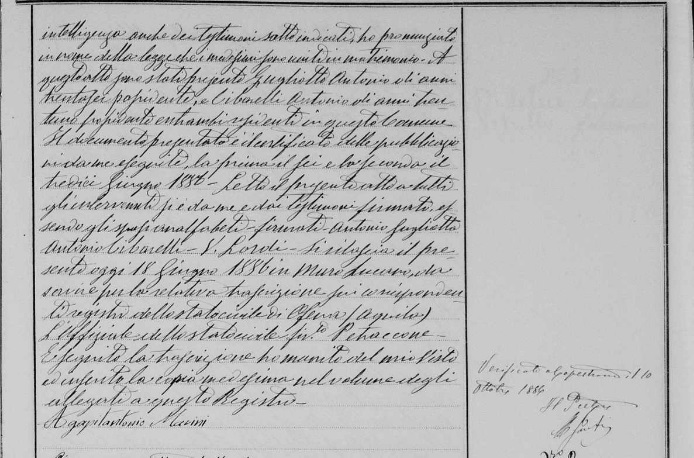 intelligenza anche dei testimoni sotto indicati, ho pronunziato
in nome della legge che i medesimi sono uniti in matrimonio. A
quest'atto sono stati presenti Guglietta Antonio di anni
trentasei possidente, e Cibarelli Antonio di anni tren-
tuno possidente entrambi residenti in questo Comune
Il documento presentato è il certificato delle pubblicazio
ni da me eseguite, la prima il sei e la seconda il
tredici Giugno 1886 - Letto il presente atto a tutti
gli intervenuti si è da me e dai testimoni firmato, es
sendo gli sposi analfabeti - firmati - Antonio Guglietta
Antonio Cibarelli - V. Lordi - Si rilascia il pre-
sente oggi 18 Giugno 1886 in Muro Lucano, da
servire per la relativa trascrizione sui corrisponden
ti registri dello stato civile di Ofena (Aquila)
L'Uffiziale dello stato civile fir.to Petraccone -
Eseguita la trascrizione ho munito del mio Visto
ed inserito la copia medesima nel volume degli
allegati a questo Registro -
Agapitantonio Marini
Verificato a Capestrano il 10
ottobre 1886
Il Pretore